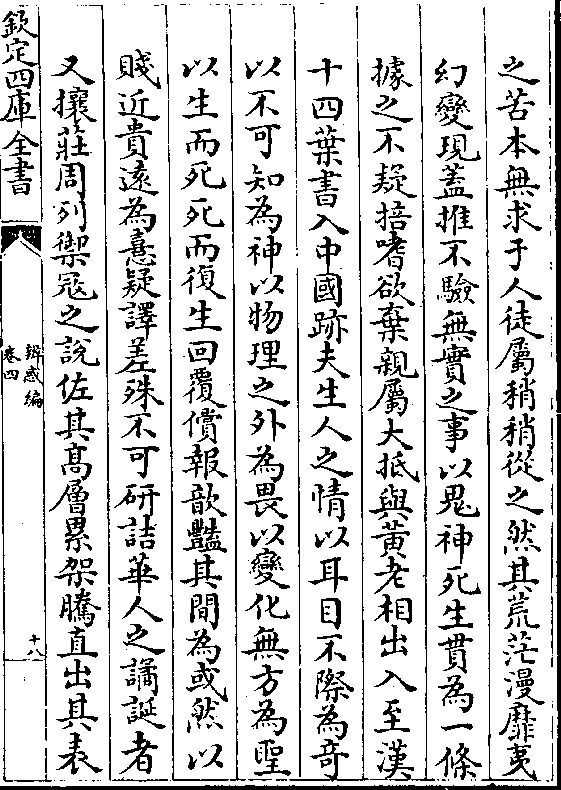 之苦本無求于人徒屬稍稍從之然其荒茫漫靡夷
幻變現蓋推不驗無實之事以鬼神死生貫為一條
據之不疑掊嗜欲棄親屬大抵與黃老相出入至漢
十四葉書入中國跡夫生人之情以耳目不際為奇
以不可知為神以物理之外為畏以變化無方為聖
以生而死死而復生回覆償報歆豔其間為或然以
賤近貴遠為憙疑譯差殊不可研詰華人之譎誕者
又攘莊周列禦冦之說佐其髙層累架騰直出其表
欽定四庫全書
辨惑編
卷四
十八